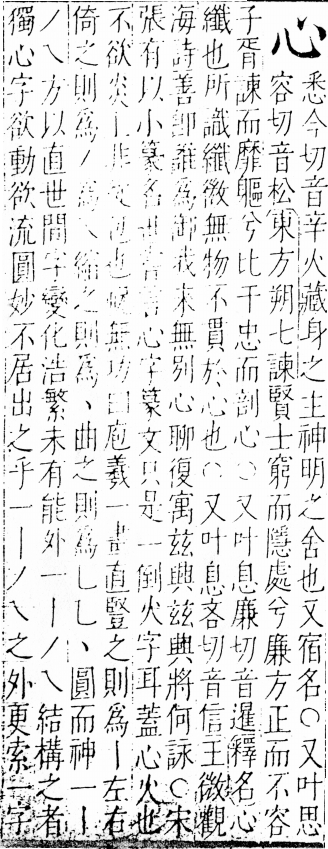 心
悉今切音辛火藏身之主神明之舍也又宿名○又叶思
容切音松東方朔七諫賢士窮而隱處兮廉方正而不容
子胥諫而靡軀兮比干忠而剖心○又叶息廉切音暹釋名心
纖也所識纖微無物不貫於心也○又叶息吝切音信王微觀
海詩善卽誰爲御我來無別心聊復寓茲興茲興將何詠○宋
張有以小篆名世心字篆文只是一倒火字耳蓋心火也
不欲炎上非也無功曰庖羲一畫直豎之則爲丨左右
倚之則爲丿爲乀縮之則爲丶曲之則爲乚乚丶圓而神一丨
丿乀方以直世間字變化浩繁未有能外一丨丿乀結構之者
獨心字欲動欲流圓妙不居出之乎一丨丿乀之外更索一字